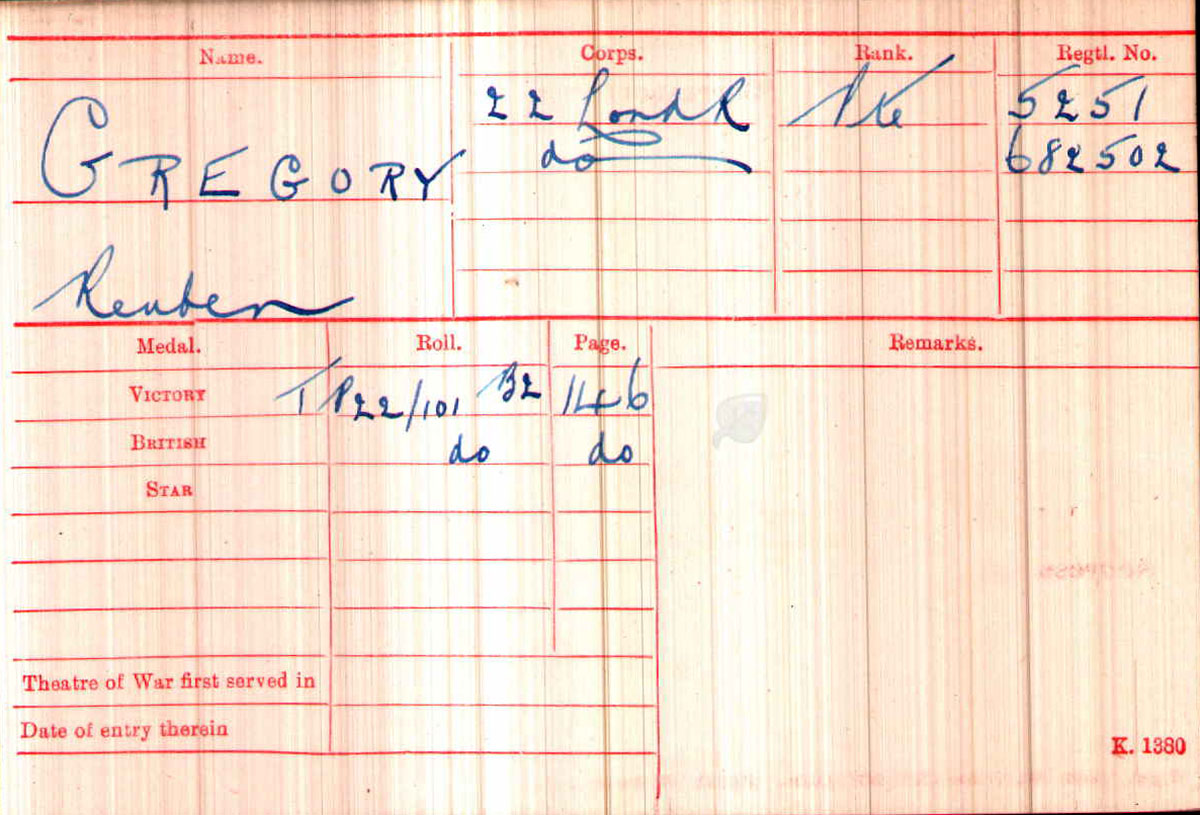 Name. Corps. Rank. Regtl. No.
GREGORY 22 Lond R Pte 5251
do 682502
Reuben
Medal. Roll. Page. Remarks.
VICTORY TP22/101 B2 146
BRITISH do do
STAR
Theatre of War first served in
Date of entry therein
K. 1380